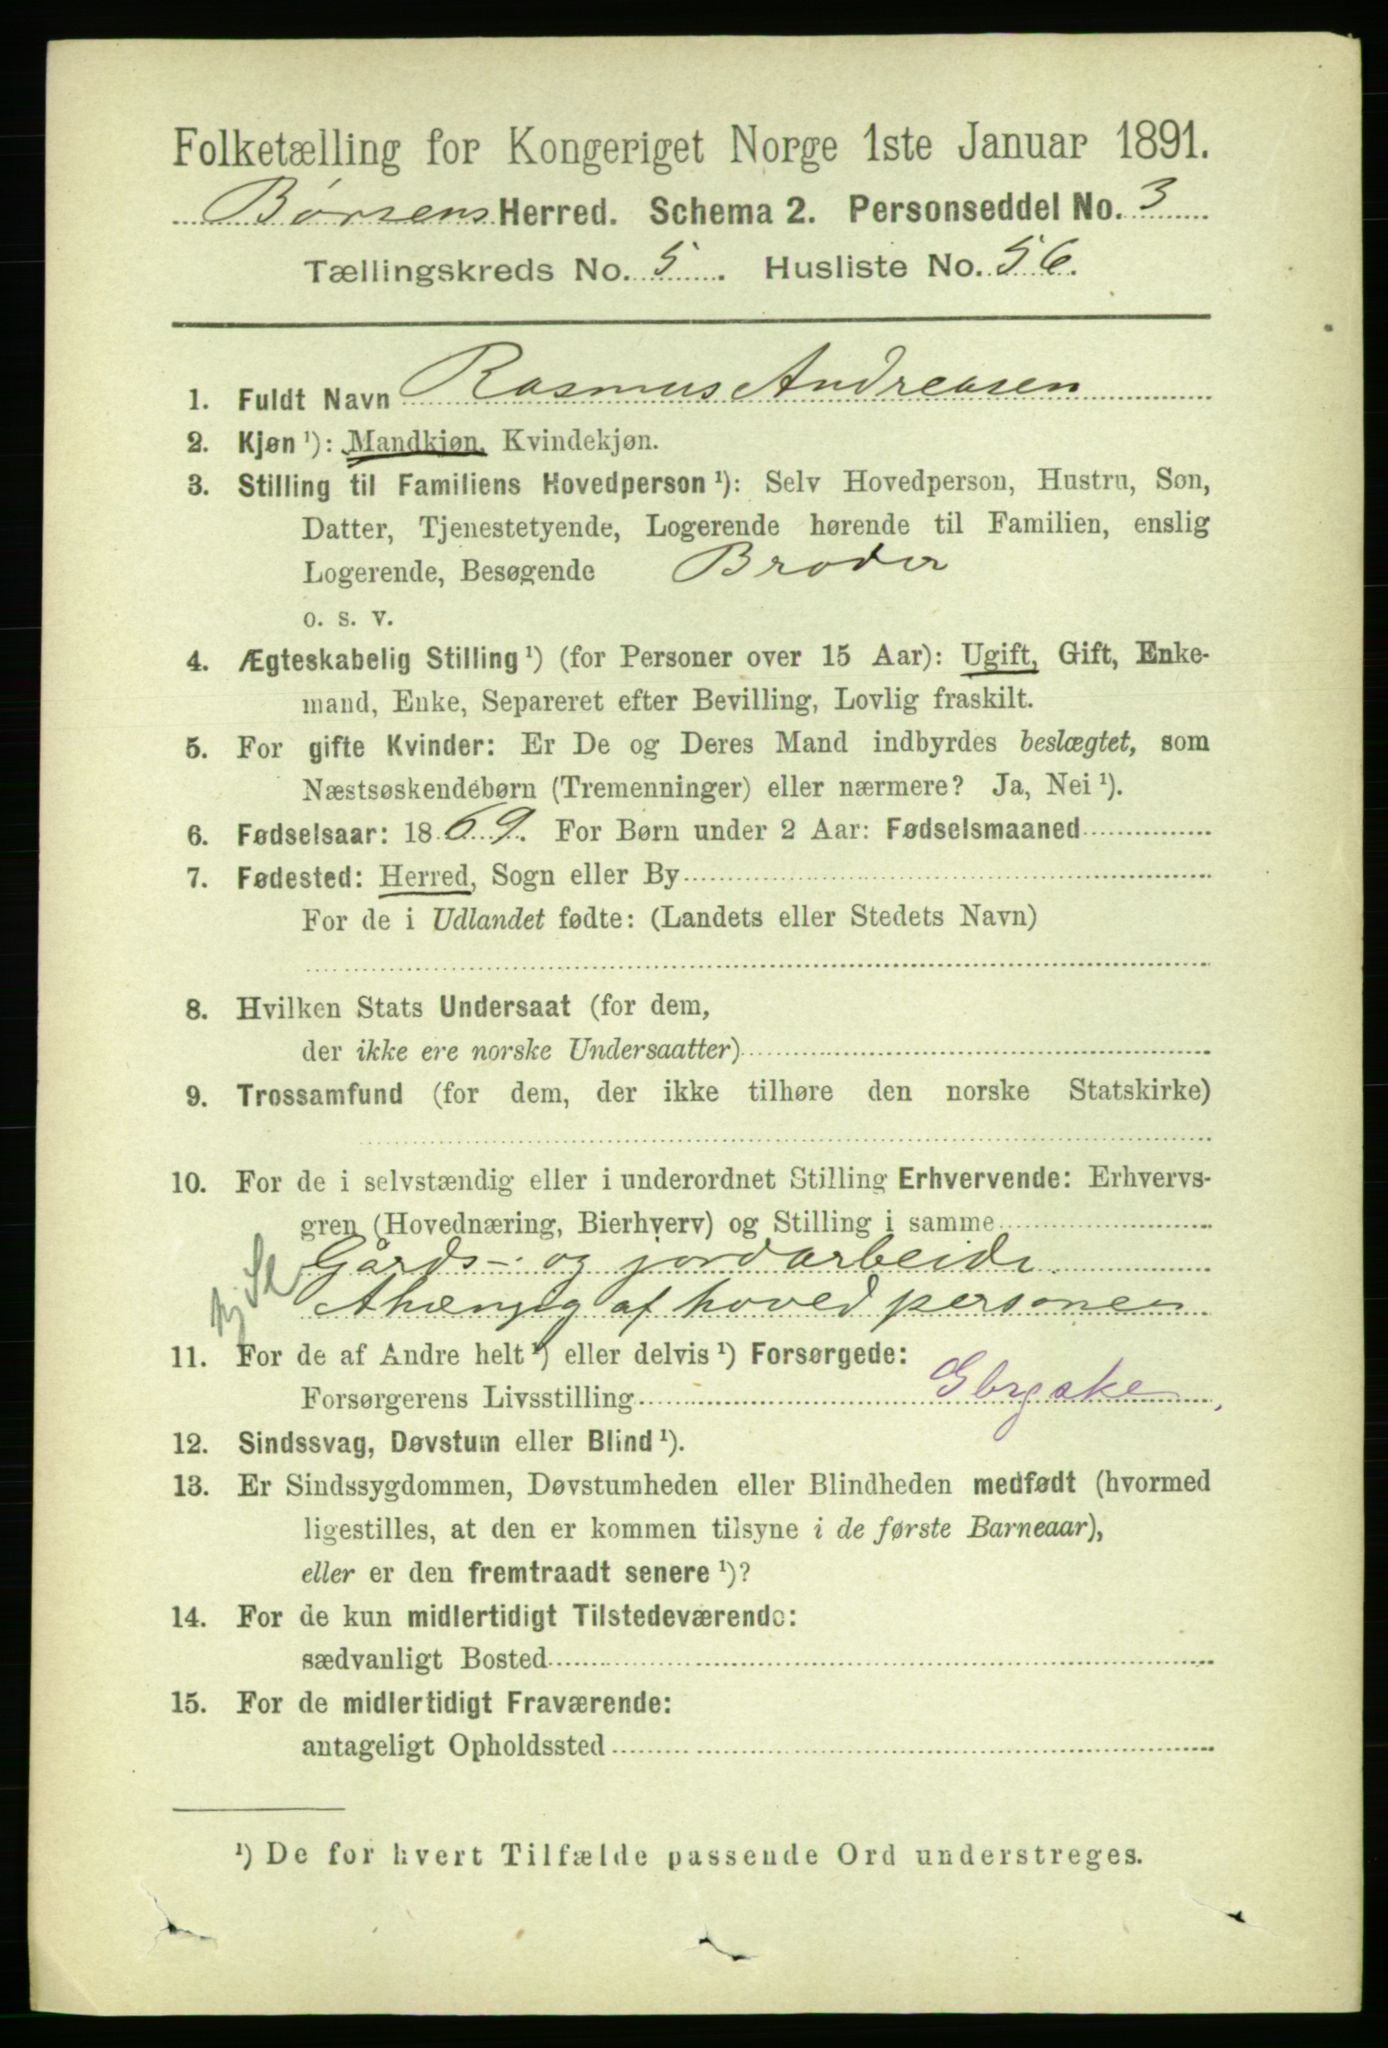 Folketælling for Kongeriget Norge 1ste Januar 1891.
Børsens Herred. Schema 2. Personseddel No. 3
Tællingskreds No. 5. Husliste No. 56.
1. Fuldt Navn Rasmus Andreasen
2. Kjøn ¹): Mandkjøn, Kvindekjøn.
3. Stilling til Familiens Hovedperson ¹): Selv Hovedperson, Hustru, Søn,
Datter, Tjenestetyende, Logerende hørende til Familien, enslig
Logerende, Besøgende Broder
o. s. v.
4. Ægteskabelig Stilling ¹) (for Personer over 15 Aar): Ugift, Gift, Enke-
mand, Enke, Separeret efter Bevilling, Lovlig fraskilt.
5. For gifte Kvinder: Er De og Deres Mand indbyrdes beslægtet, som
Næstsøskendebørn (Tremenninger) eller nærmere? Ja, Nei ¹).
6. Fødselsaar: 1869. For Børn under 2 Aar: Fødselsmaaned
7. Fødested: Herred, Sogn eller By
For de i Udlandet fødte: (Landets eller Stedets Navn)
8. Hvilken Stats Undersaat (for dem,
der ikke ere norske Undersaatter)
9. Trossamfund (for dem, der ikke tilhøre den norske Statskirke)
10. For de i selvstændig eller i underordnet Stilling Erhvervende: Erhvervs-
gren (Hovednæring, Bierhverv) og Stilling i samme
Gårds- og jordarbeide.
Ahængig af hovedpersonen
11. For de af Andre helt ¹) eller delvis ¹) Forsørgede:
Forsørgerens Livsstilling
12. Sindssvag, Døvstum eller Blind ¹).
13. Er Sindssygdommen, Døvstumheden eller Blindheden medfødt (hvormed
ligestilles, at den er kommen tilsyne i de første Barneaar),
eller er den fremtraadt senere ¹)?
14. For de kun midlertidigt Tilstedeværende:
sædvanligt Bosted
15. For de midlertidigt Fraværende:
antageligt Opholdssted
¹) De for hvert Tilfælde passende Ord understreges.